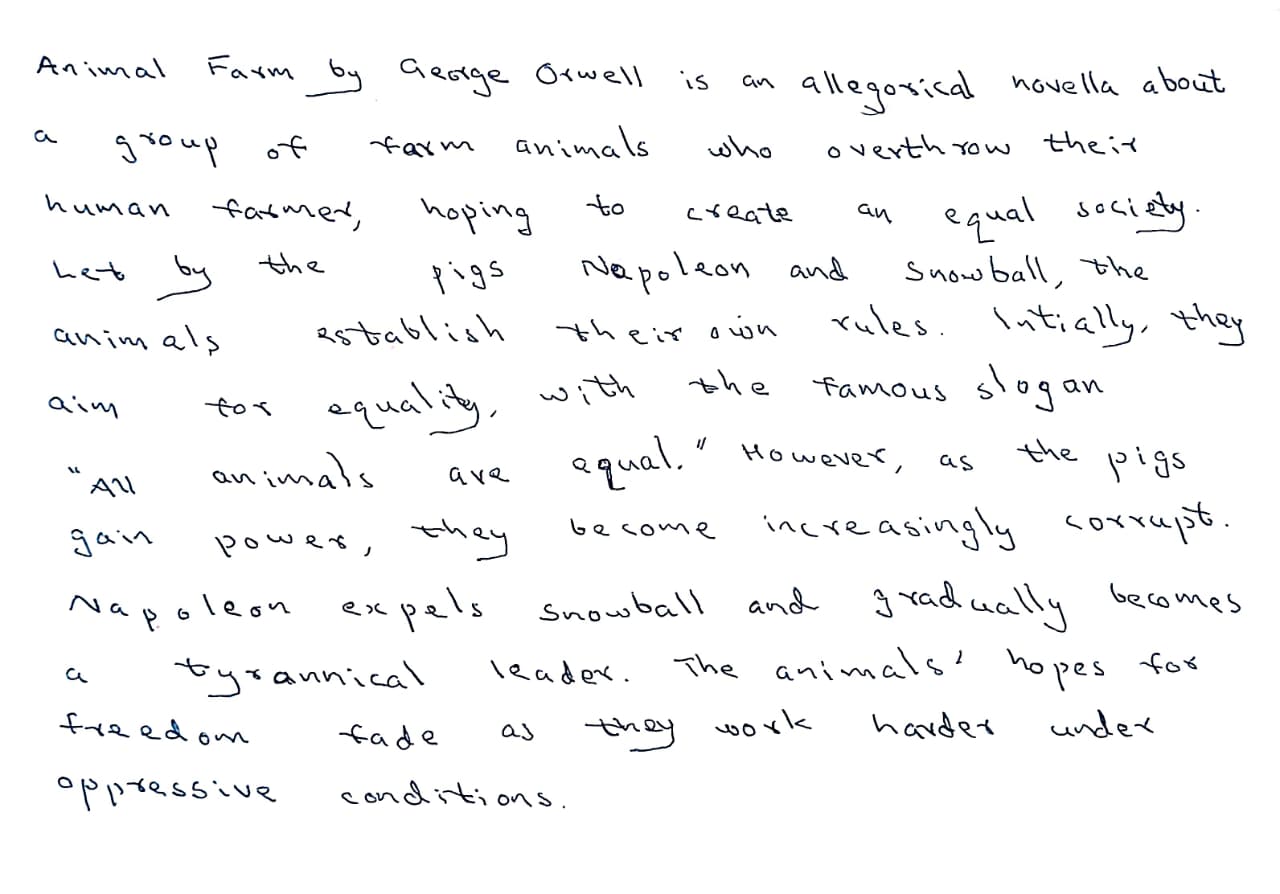 Animal Farm by George Orwell is an allegorical novella about
a group of farm animals who overthrow their
human farmer, hoping to create an equal society.
Let by the pigs Napoleon and Snowball, the
animals establish their own rules. Intially, they
aim for equality, with the famous slogan
"All animals are equal." However, as the pigs
gain power, they become increasingly corrupt.
Napoleon expels Snowball and gradually becomes
a tyrannical leader. The animals' hopes for
freedom fade as they work harder under
oppressive conditions.